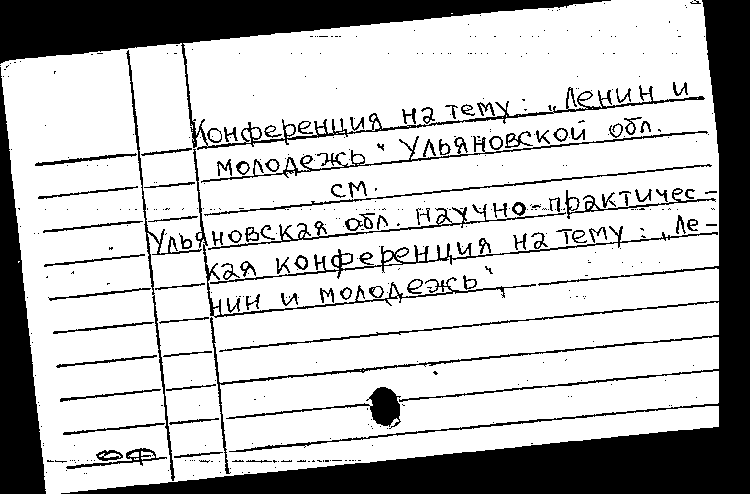 Конференция на тему: „Ленин и
молодежь“ Ульяновской обл.
см.
Ульяновская обл. научно-практичес-
кая конференция на тему: „Ле-
нин и молодежь“,
ОФ